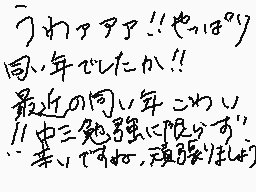 うわァァァ!!やっぱり
同い年でしたか!!
最近の同い年こわい
!!中三勉強に限らず
辛いですね、頑張りましょう